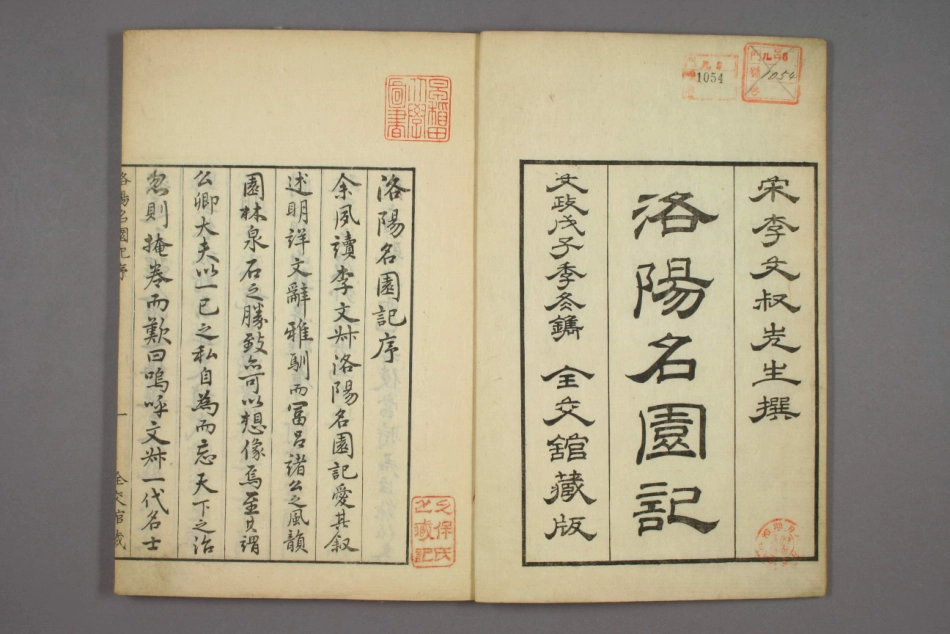 宋李文叔先生撰
洛陽名園記
文政戊子季冬鐫 全交館藏版
1054
1054
早稲田
大學
圖書
洛陽名園記序
余夙讀李文叔洛陽名園記愛其叙
述明詳文辭雅馴而冨呂諸公之風韻
園林泉石之勝致亦可以想像焉至其謂
公卿大夫以一己之私自為而忘天下之治
忽則掩卷而歎曰嗚呼文叔一代名士
洛陽名園記序 一 全交館藏
久保氏
之藏記